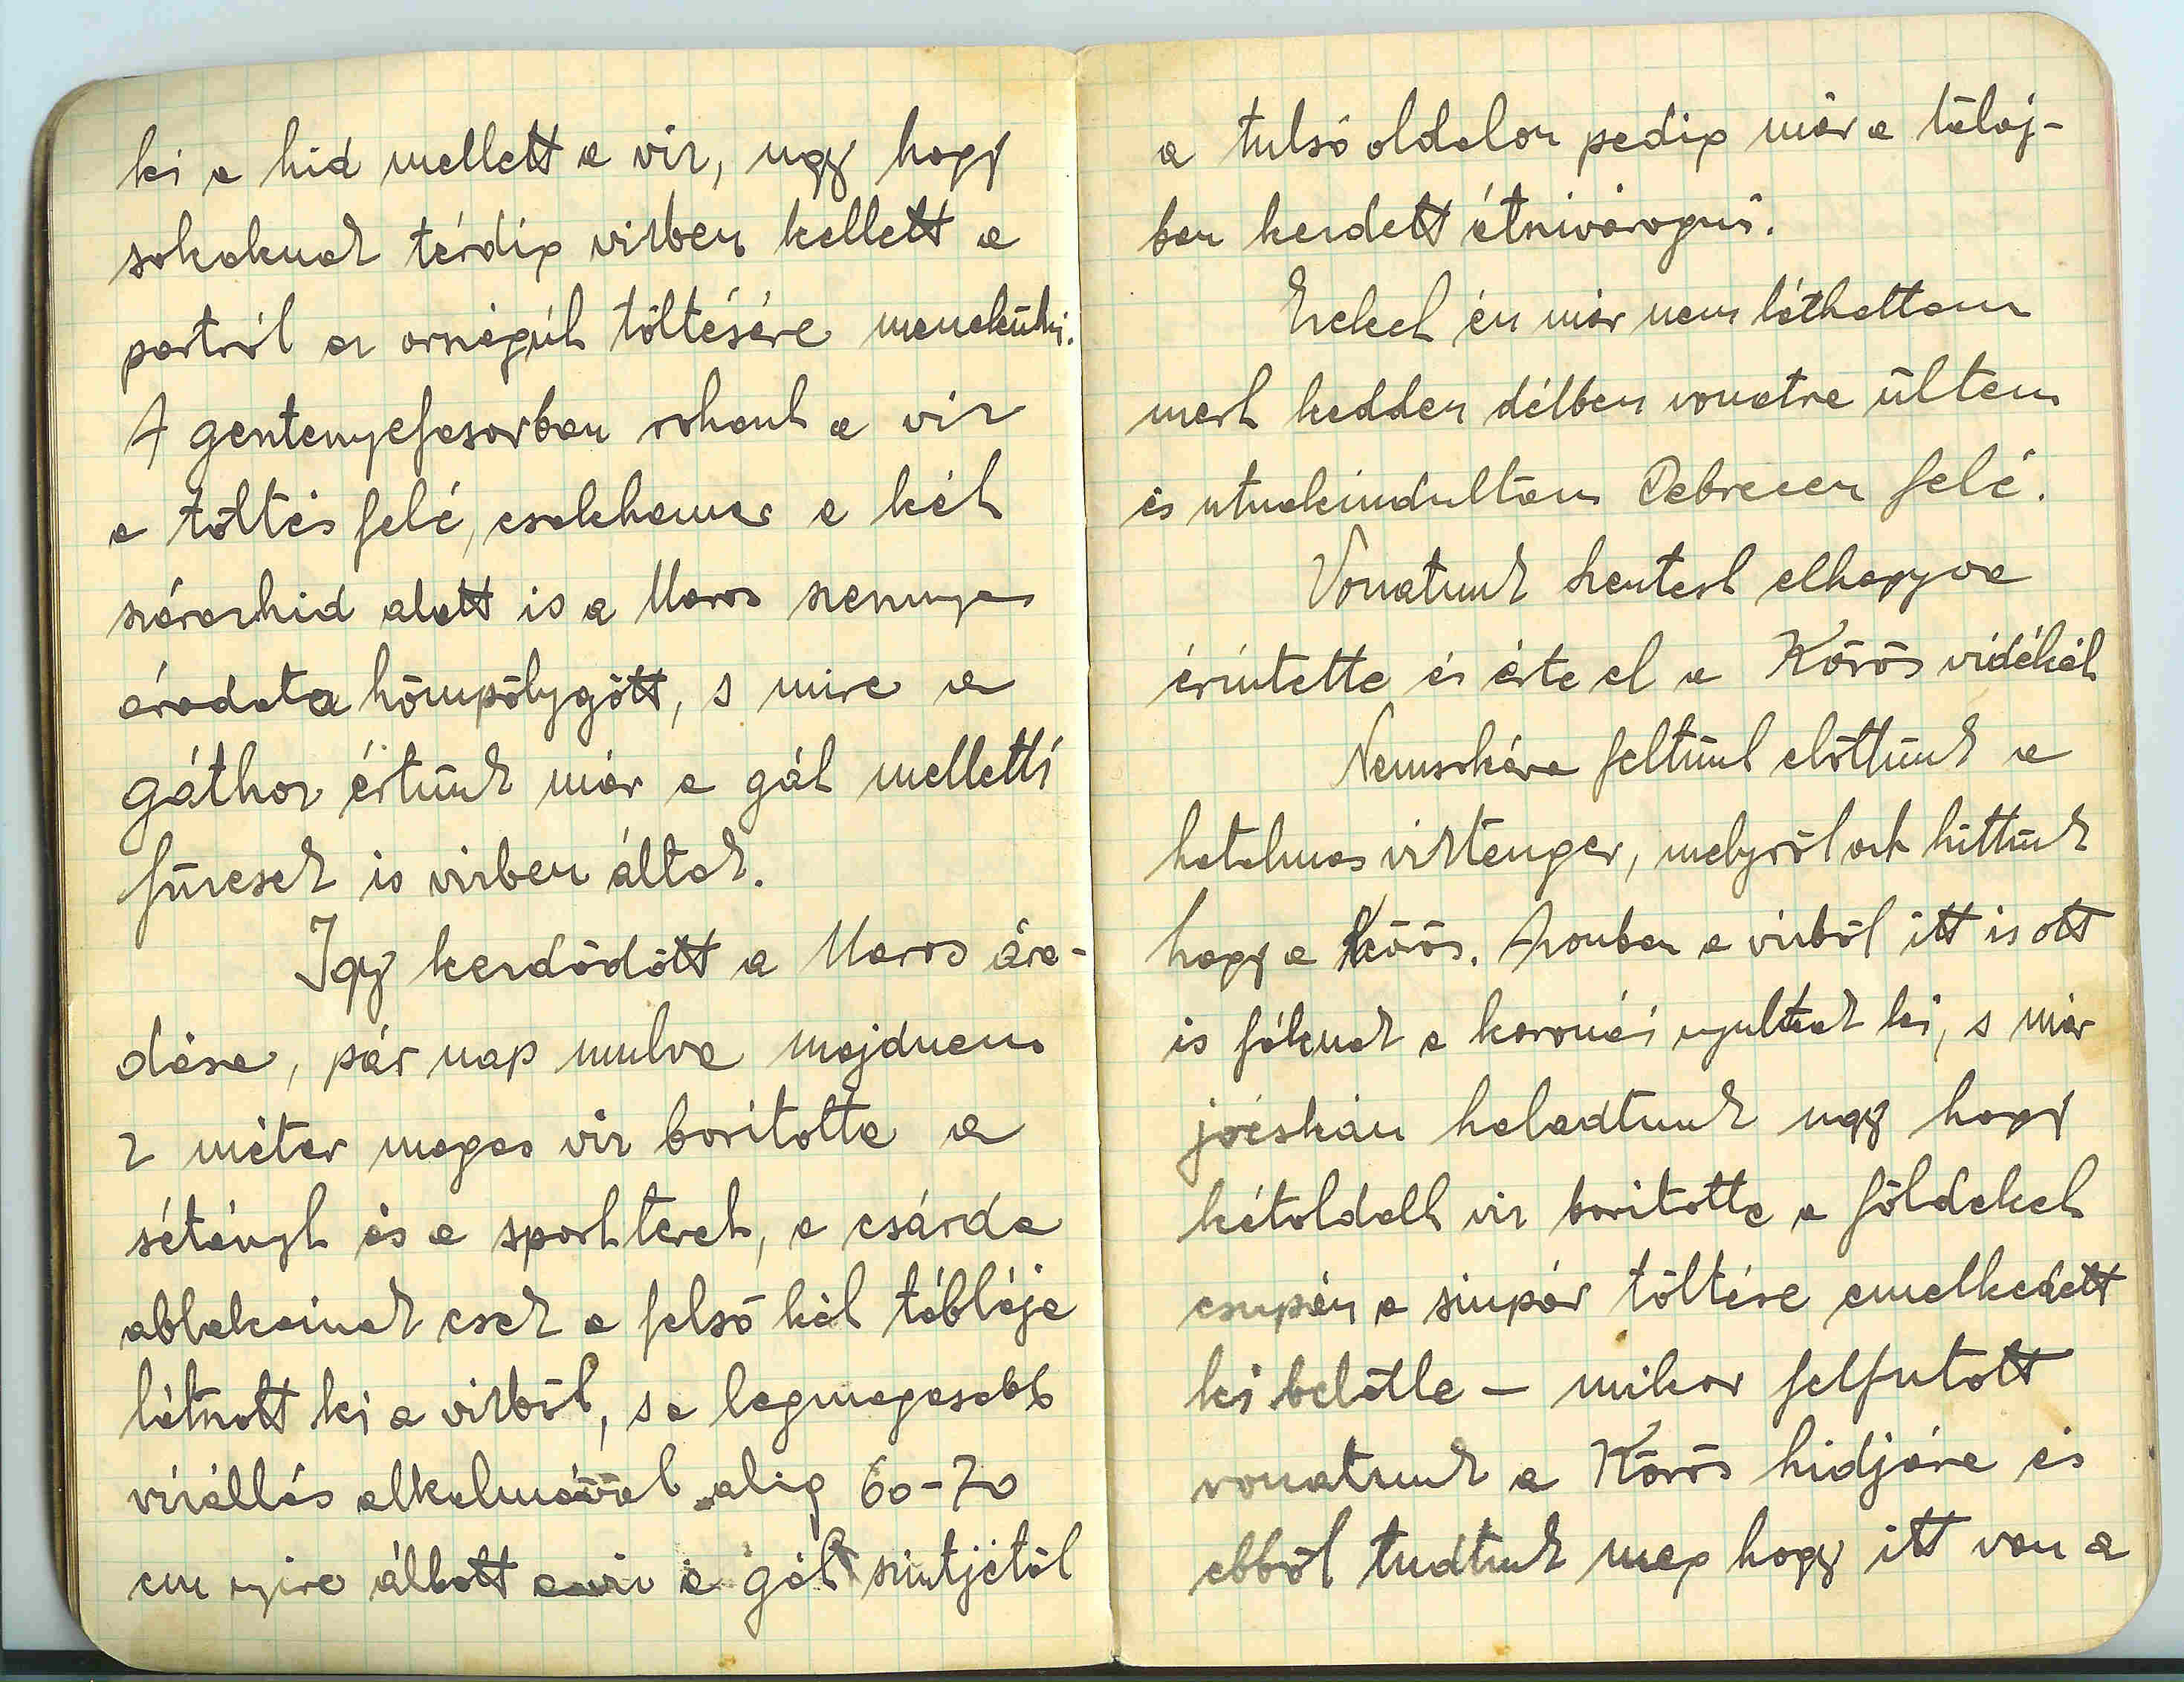 ki a hid mellett a víz, ugy hogy
sokaknak térdig vízben kellett a
partról az országút töltésére menekülni.
A gesztenyefasorban rohant a víz
a töltés felé, csakhamar a két
szárazhid alatt is a Maros szennyes
áradata hömpölygött, s mire a
gáthoz értünk már a gát melletti
füzesek is vízben áltak.
Igy kezdődött a Maros ára-
dása, pár nap mulva majdnem
2 méter magas víz borította a
sétányt és a sportteret, a csárda
ablakainak csak a felső két táblája
látszott ki a vízből, s a legmagasabb
vízállás alkalmával alig 60-70
cm nyire állott a víz a gát szintjétől
a tulsó oldalon pedig már a talaj-
ban kezdett átszivárogni.
Ezeket én már nem láthattam
mert kedden délben vonatra ültem
és utnakindultam Debrecen felé.
Vonatunk Szentest elhagyva
érintette és érte el a Körös vidékét
Nemsokára feltünt előttünk a
hatalmas víztenger, melyről azt hittük
hogy a Körös. Azonban a vízből itt is ott
is fáknak a koronái nyultak ki, s már
jócskán haladtunk ugy hogy
kétoldalt víz borította a földeket
csupán a sinpár töltése emelkedett
ki belőlle – mikor felfutott
vonatunk a Körös hidjára és
ebből tudtuk meg hogy itt van a